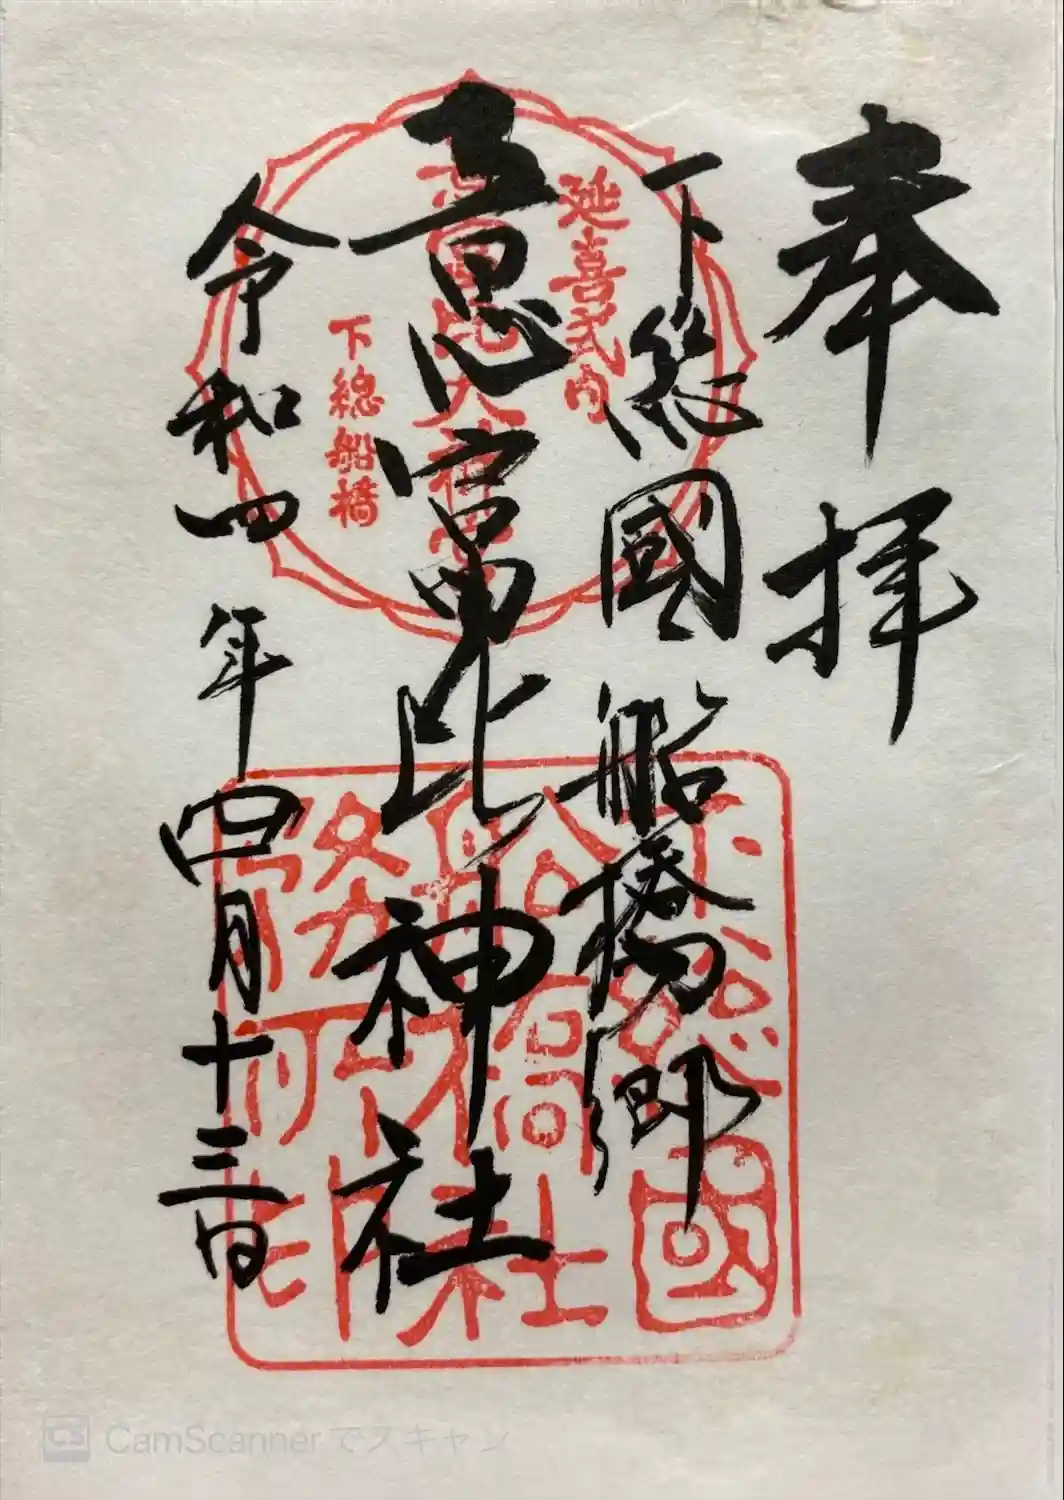 奉拝
下総國船橋郷
延喜式内
意富比神社
下總船橋
令和四年四月十三日
CamScannerでスキャン